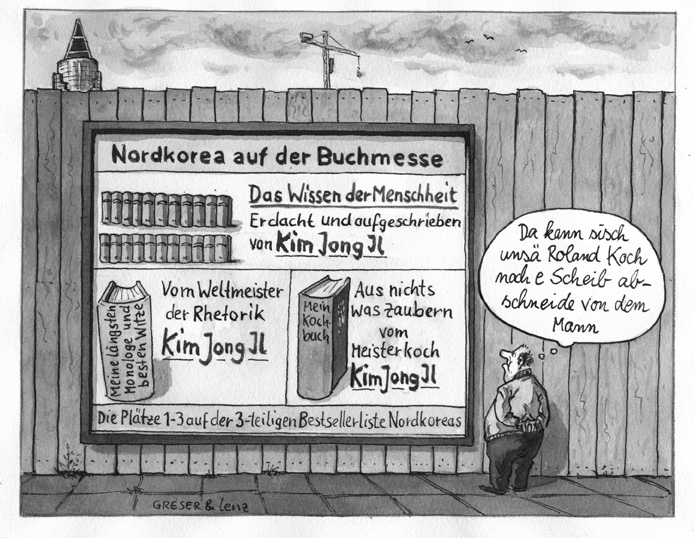 Nordkorea auf der Buchmesse
Das Wissen der Menschheit
Erdacht und aufgeschrieben
von Kim Jong Il
Meine längsten
Monologe und
besten Witze
Vom Weltmeister
der Rhetorik
Kim Jong Il
Mein
Koch-
buch
Aus nichts
was zaubern
vom
Meisterkoch
Kim Jong Il
Die Plätze 1-3 auf der 3-teiligen Bestsellerliste Nordkoreas
Da kann sisch
unsä Roland Koch
noch e Scheib ab-
schneide von dem
Mann
GRESER & Lenz